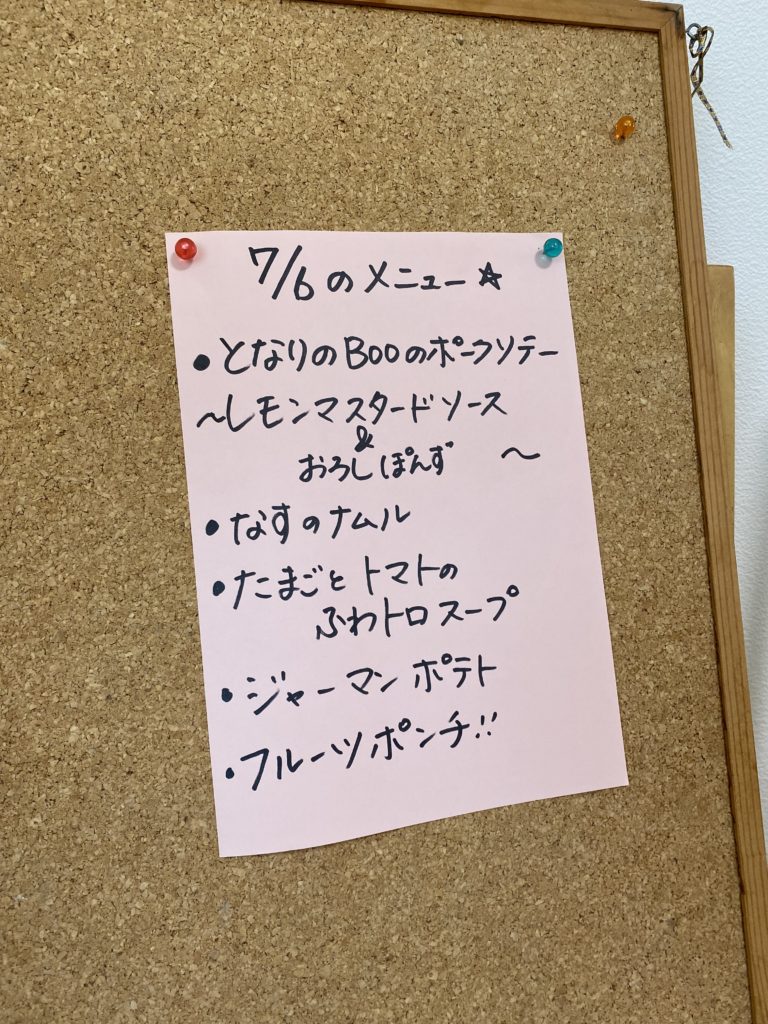 7/6のメニュー☆
•となりのBooのポークソテー
〜レモンマスタードソース
&
おろしぽんず 〜
•なすのナムル
•たまごとトマトの
ふわトロスープ
•ジャーマンポテト
•フルーツポンチ!!